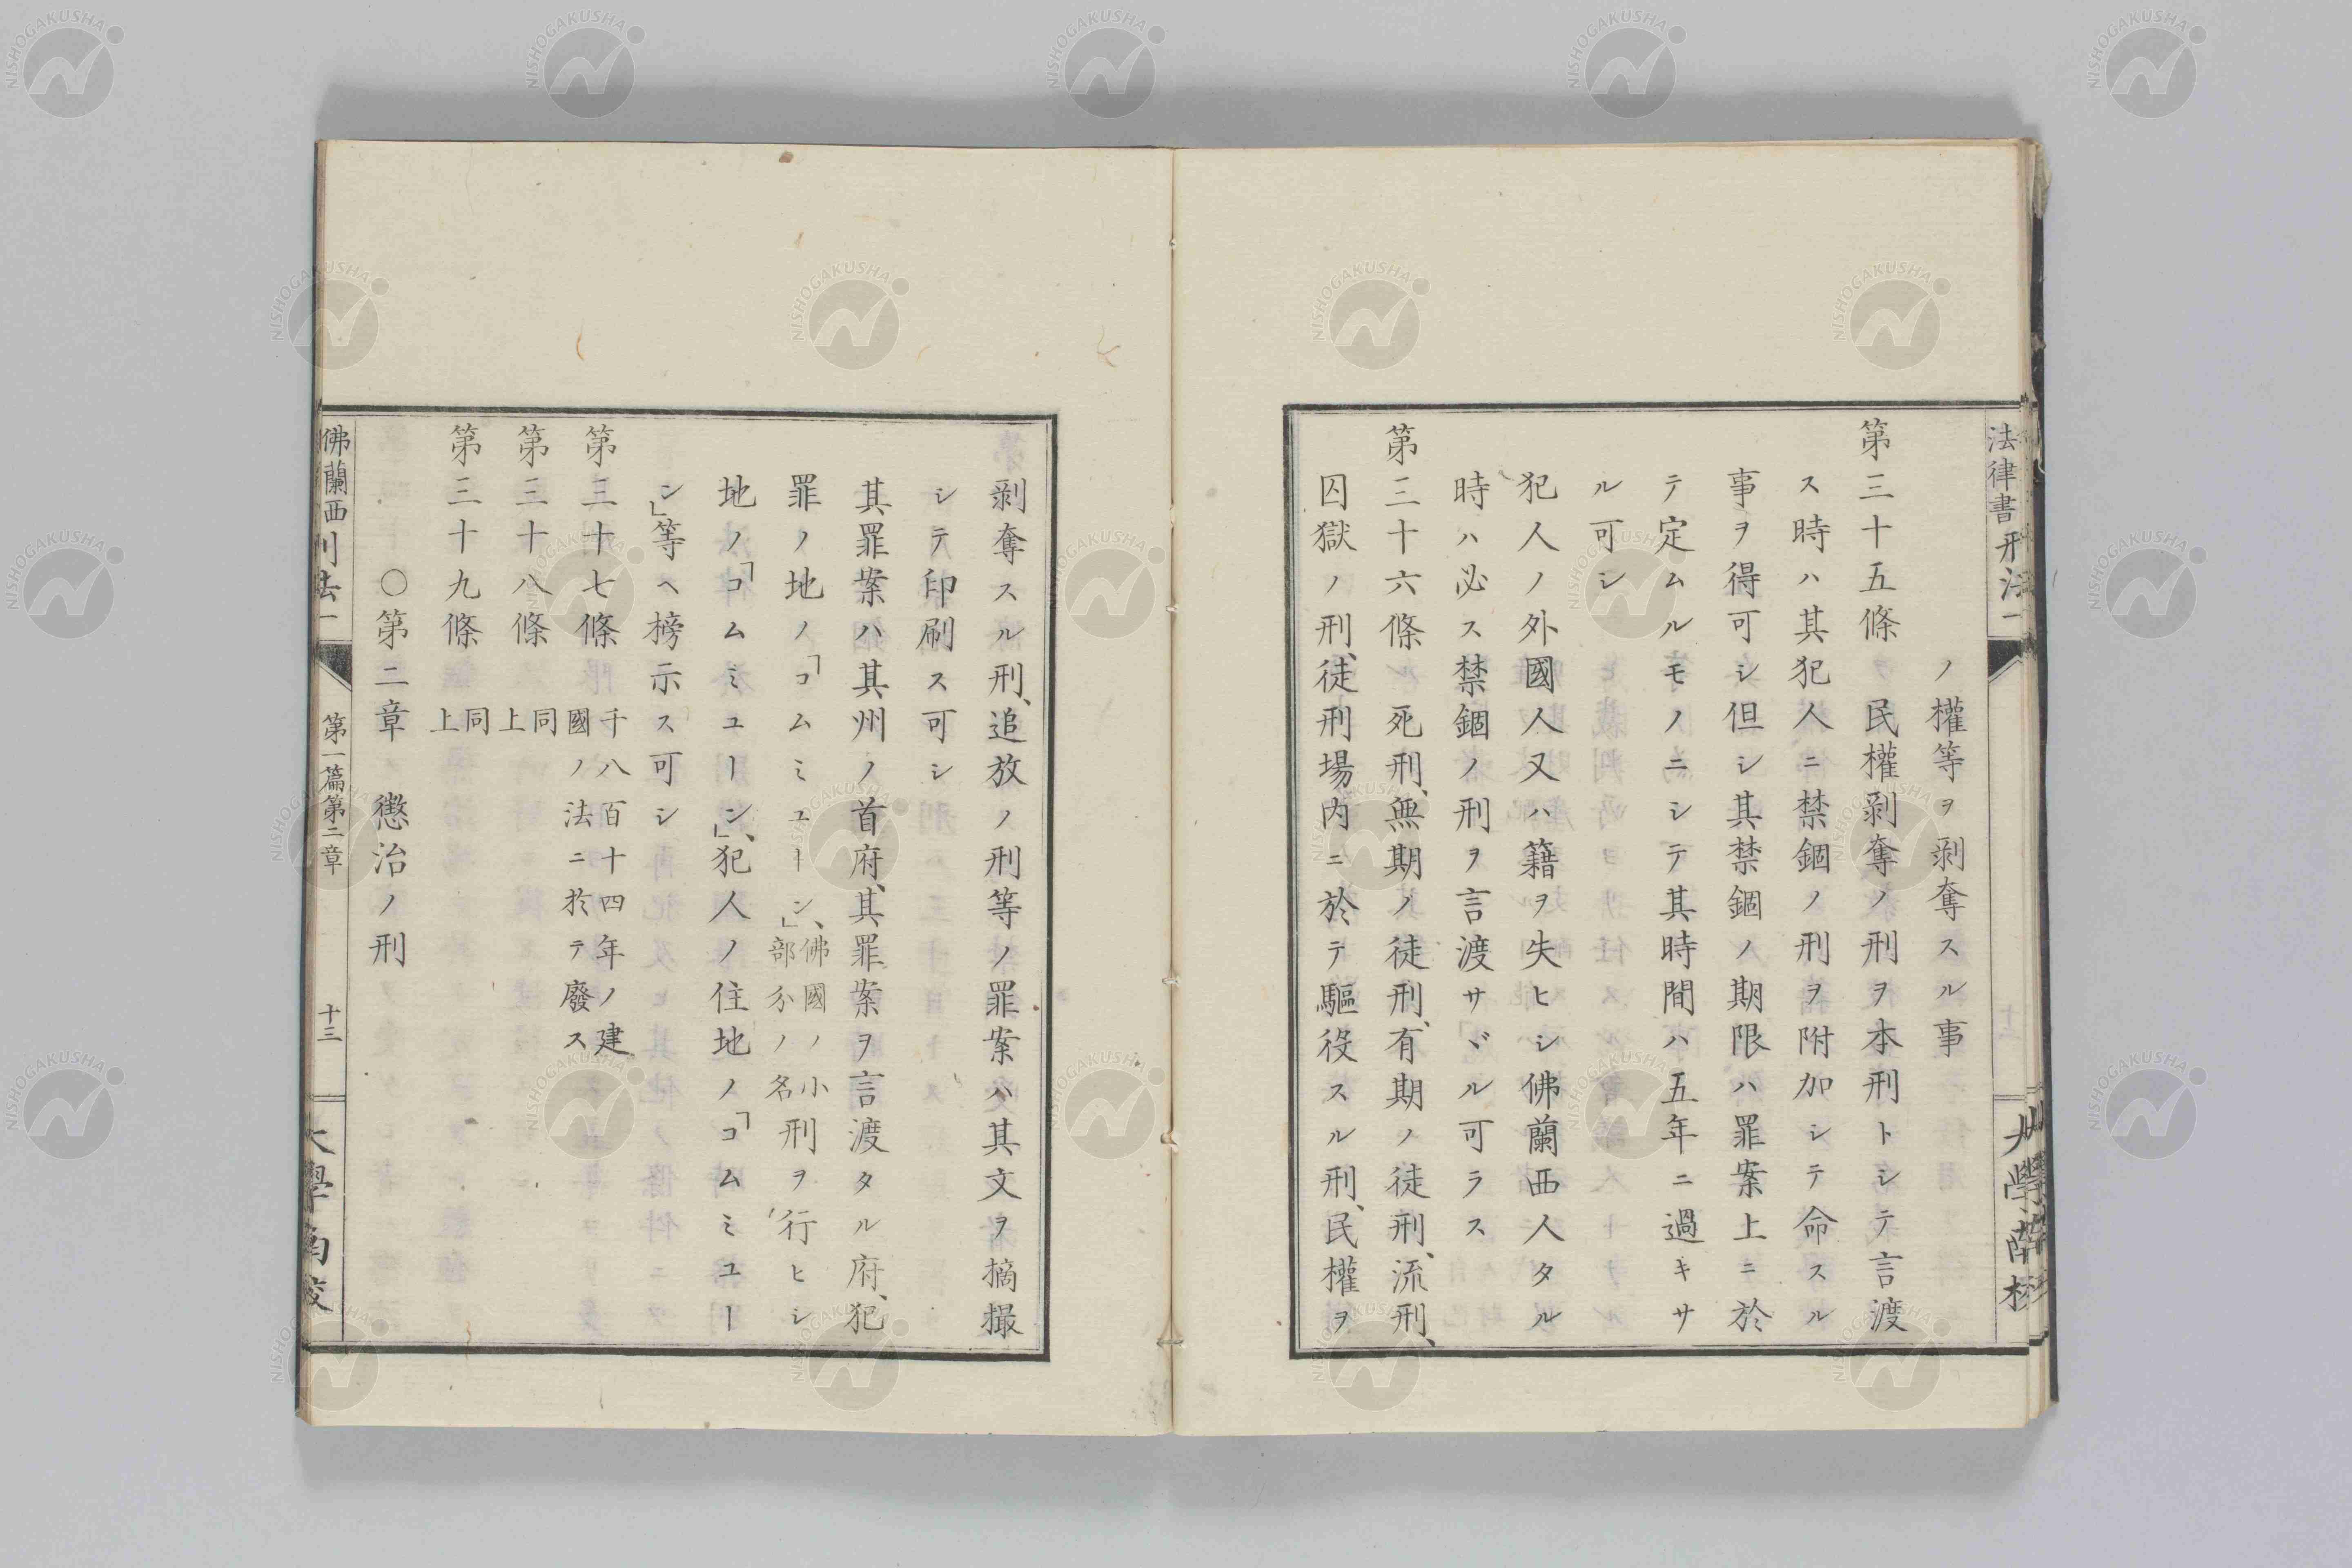 法律書刑法一
ノ權等ヲ剥奪スル事
第三十五條 民權剥奪ノ刑ヲ本刑トシテ言渡
ス時ハ其犯人ニ禁錮ノ刑ヲ附加シテ命スル
事ヲ得可シ但シ其禁錮ノ期限ハ罪案上ニ於
テ定ムルモノニシテ其時間ハ五年ニ過キサ
ル可シ
犯人ノ外國人又ハ籍ヲ失ヒシ佛蘭西人タル
時ハ必ス禁錮ノ刑ヲ言渡サヾル可ラス
第三十六條 死刑、無期ノ徒刑、有期ノ徒刑、流刑、
囚獄ノ刑、徒刑場内ニ於テ驅役スル刑、民權ヲ
剥奪スル刑、追放ノ刑等ノ罪案ハ其文ヲ摘撮
シテ印刷ス可シ
其罪案ハ其州ノ首府、其罪案ヲ言渡タル府、犯
罪ノ地ノ「コムミユーン」、佛國ノ小部分ノ名刑ヲ行ヒシ
地ノ「コムミユーン」、犯人ノ住地ノ「コムミユー
ン」等ヘ榜示ス可シ
第三十七條 千八百十四年ノ建國ノ法ニ於テ廢ス
第三十八條 同上
第三十九條 同上
○第二章 懲治ノ刑
佛蘭西刑法一 第一篇第二章 十三 大學南校
NISHOGAKUSHA